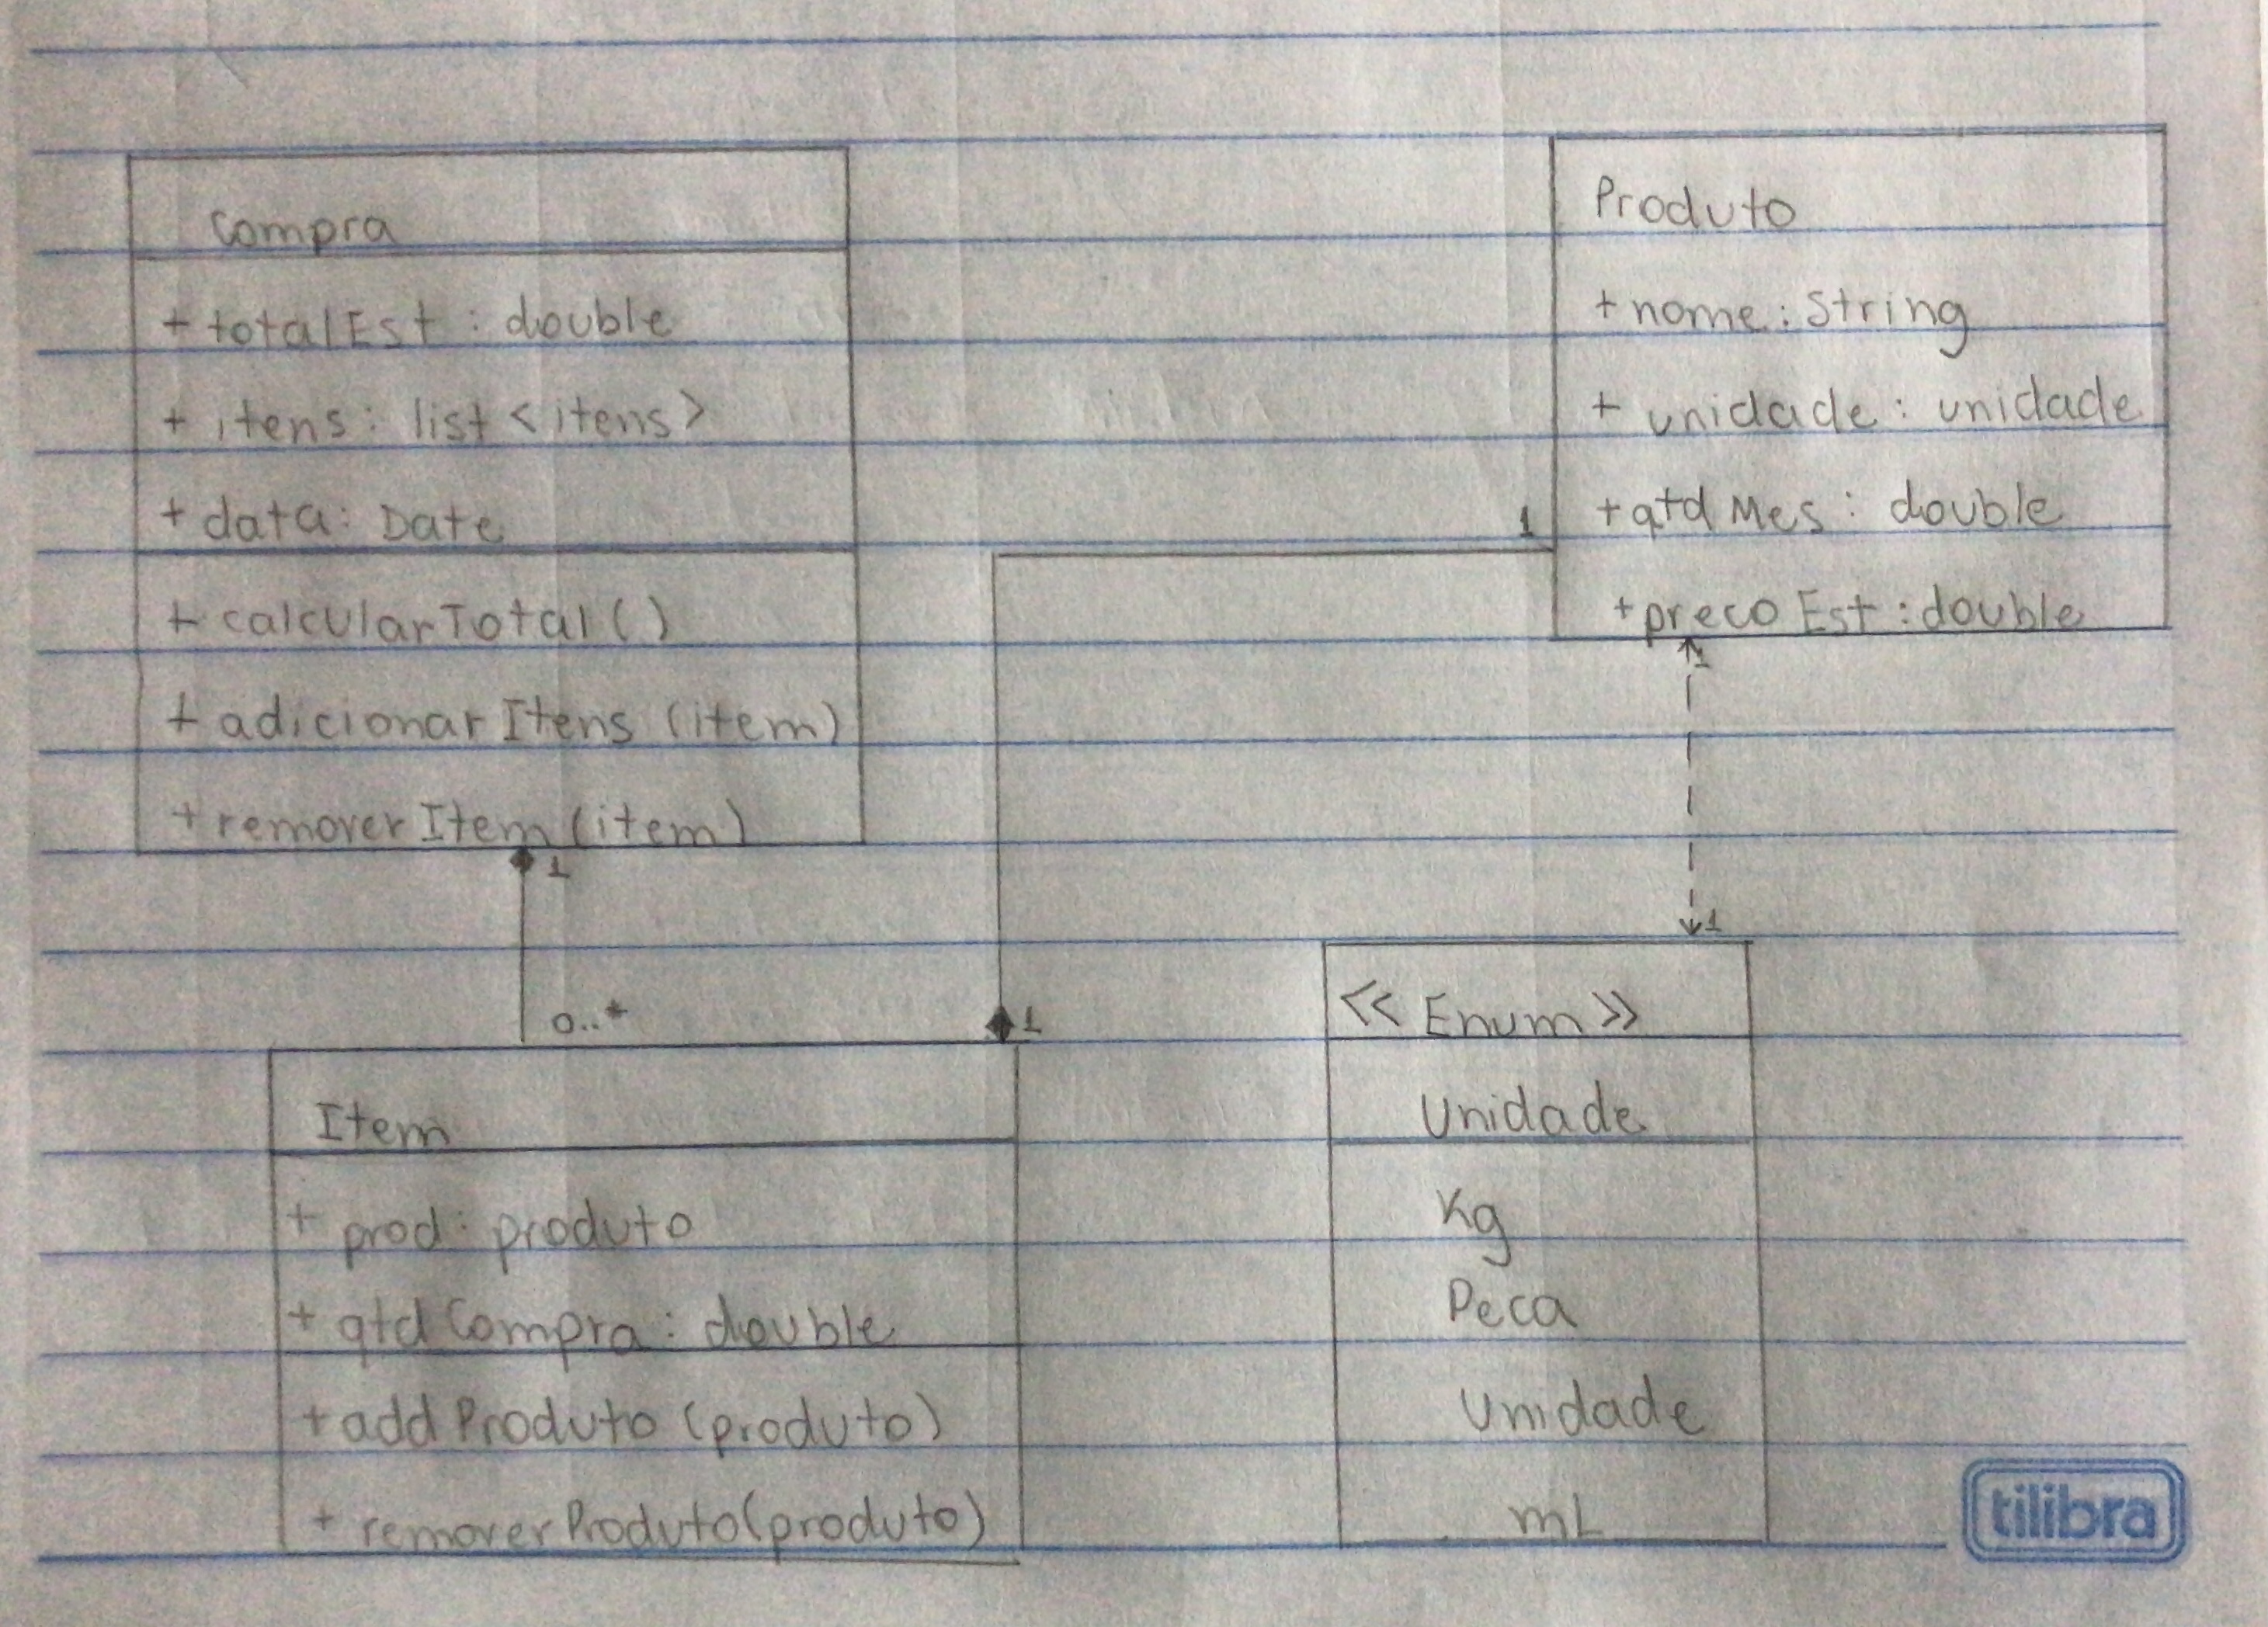 Compra
+ totalEst : double
+ itens: list <itens>
+ data: Date
+ calcularTotal()
+ adicionarItens (item)
+ removerItem (item)
1
0..*
Produto
+ nome: String
+ unidade: unidade
+ qtdMes: double
+ precoEst: double
1
1
1
1
Item
+ prod: produto
+ qtdCompra: double
+ addProduto (produto)
+ removerProduto(produto)
<< Enum >>
Unidade
Kg
Peca
Unidade
mL
tilibra